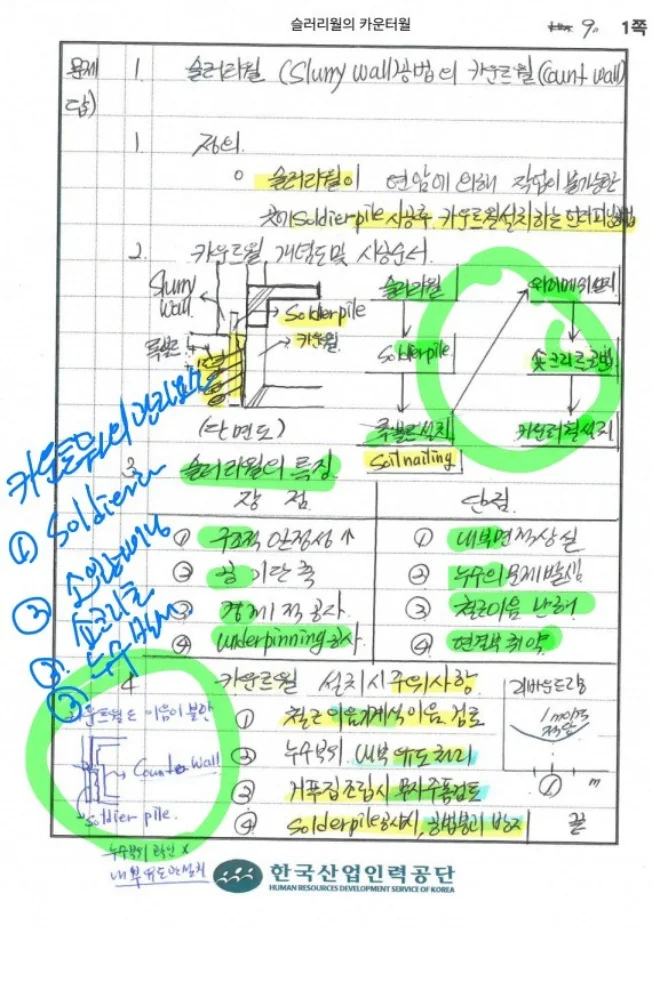 슬러리월의 카운터월
9. 1쪽
문제 1. 슬러리월 (Slurry wall)공법의 카운트월(Count wall)
답)
1. 정의.
○ 슬러리월이 연암에 의해 작업이 불가능한
곳에 Soldier pile 시공후 카운트월설치하는 언더피닝공법
2. 카운트월 개념도 및 시공순서.
Slurry wall.
Solderpile
카운트월.
(단면도)
슬러리월
Solderpile.
설치
Soil nailing
와이어메쉬설치
숏크리트
카운터월설치
3. 슬러리월의 특징.
장 점
단점.
① 구조적 안정성 ↑
② 공기단축
③ 경제적 공사.
④ underpinning공사.
① 내부면적상실
② 누수의 문제 발생
③ 철근이음 난해
④ 연결부 취약
카운트월의 관리요소
① Soldier
② 소일네일링
③ 숏크리트
4. 카운트월 설치시 주의사항
① 철근 이음 기계식이음. 검토
② 누수부위 내부 유도처리
③ 거푸집조립시 무지주동바리검토
④ Solderpile공사시, 공벽붕괴 방지 끝
m
이음이 불안
Counte wall
Soldier pile.
누수부위
한국산업인력공단
HUMAN RESOURCES DEVELOPMENT SERVICE OF KOREA